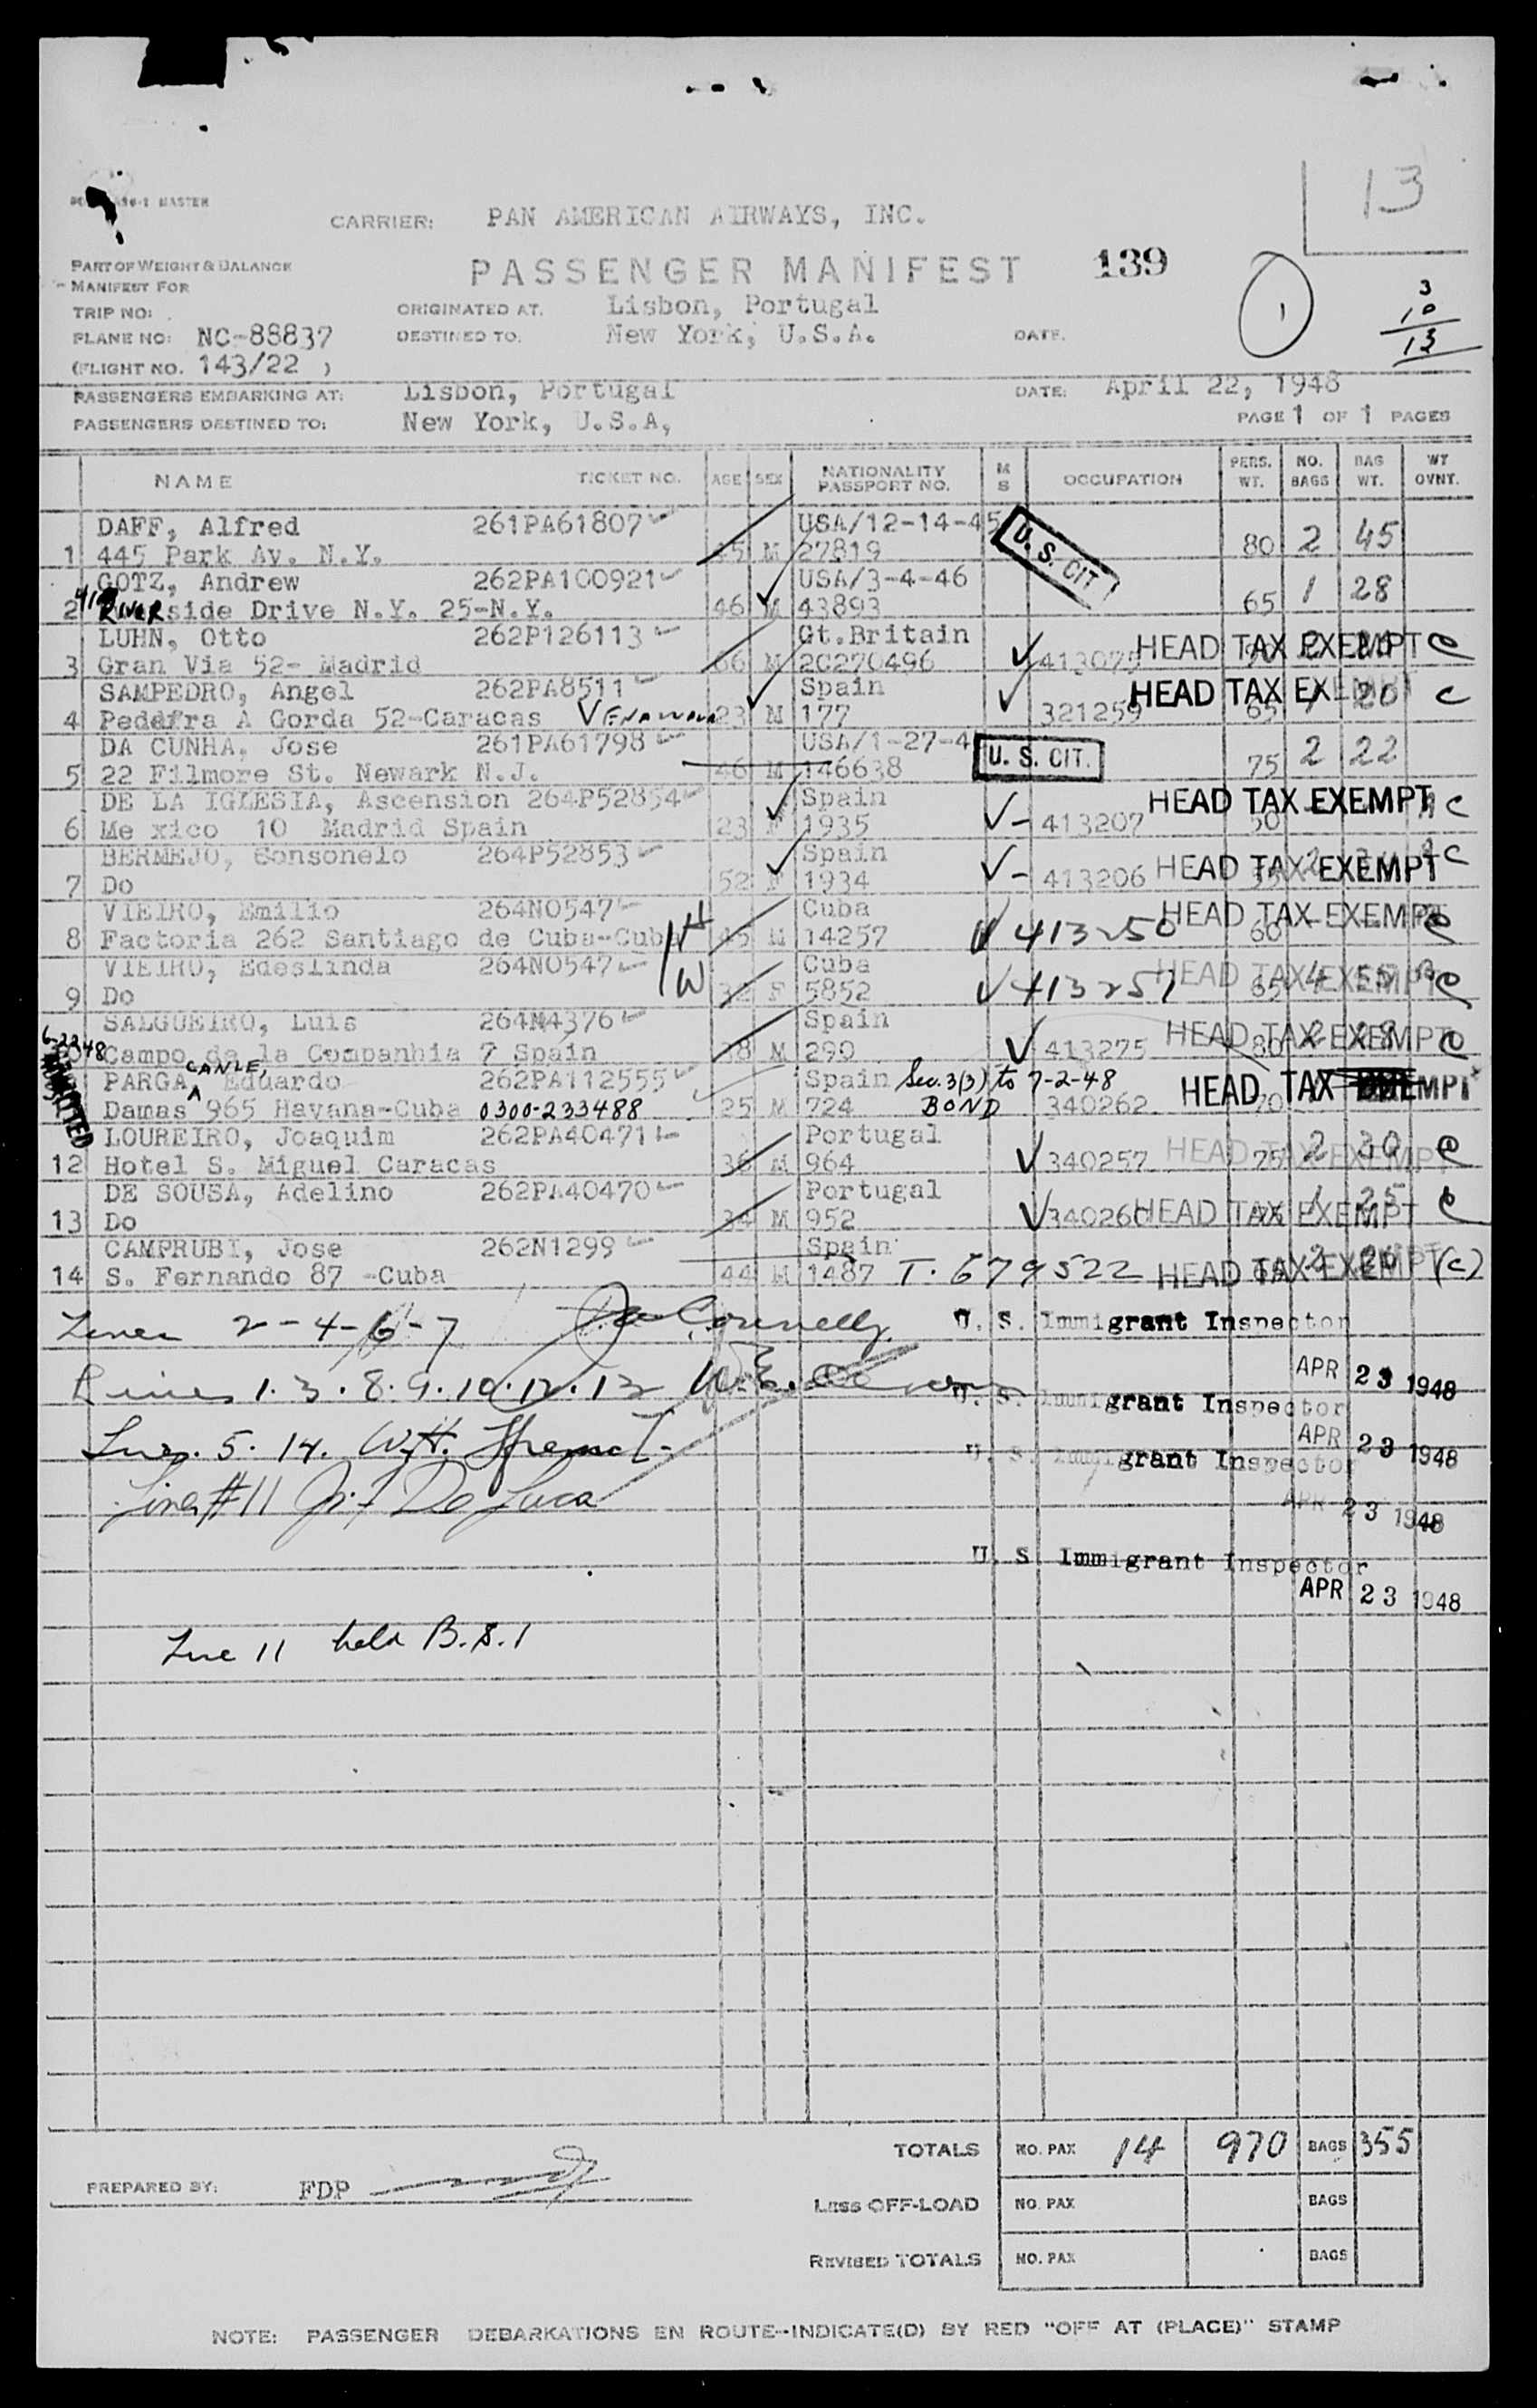 13
MASTER
CARRIER: PAN AMERICAN AIRWAYS, INC.
PASSENGER MANIFEST 139
PART OF WEIGHT & BALANCE
MANIFEST FOR
1
3
10
13
TRIP NO:
ORIGINATED AT. Lisbon, Portugal
PLANE NO: NC-88837 DESTINED TO. New York, U.S.A. DATE.
(FLIGHT NO. 143/22 )
PASSENGERS EMBARKING AT: Lisbon, Portugal DATE: April 22, 1948
PASSENGERS DESTINED TO: New York, U.S.A, PAGE 1 OF 1 PAGES
NAME TICKET NO. AGE SEX NATIONALITY PASSPORT NO. M S OCCUPATION PERS. WT. NO. BAGS BAG WT. WT OVNT.
DAFF, Alfred 261PA61807 USA/12-14-45 U. S. CIT
1 445 Park Av. N.Y. 45 M 27819 80 2 45
GOTZ, Andrew 262PA100921 USA/3-4-46
2 RIVERside Drive N.Y. 25-N.Y. 46 M 43893 65 1 28
LUHN, Otto 262P126113 Gt.Britain
3 Gran Via 52- Madrid 66 M 20270496 413075 HEAD TAX EXEMPT C
SAMPEDRO, Angel 262PA8511 Spain
4 Peddfra A Gorda 52-Caracas 23 M 177 321259 HEAD TAX EXEMPT 65 1 20 C
DA CUNHA, Jose 261PA61798 USA/1-27-4 U. S. CIT.
5 22 Filmore St. Newark N.J. 46 M 146638 75 2 22
DE LA IGLESIA, Ascension 264P52854 Spain
6 Me xico 10 Madrid Spain 23 F 1935 413207 HEAD TAX EXEMPT 50 C
BERMEJO, Consonelo 264P52853 Spain
7 Do 52 F 1934 413206 HEAD TAX EXEMPT C
VIEIRO, Emilio 264N0547 H Cuba
8 Factoria 262 Santiago de Cuba-Cuba 45 M 14257 413250 HEAD TAX EXEMPT 60 C
VIEIRO, Edeslinda 264N0547 W Cuba
9 Do 32 F 5852 413251 HEAD TAX EXEMPT 65 4 55 C
SALGUEIRO, Luis 264N4376 Spain
6-2248
Campo de la Companhia 7 Spain 38 M 290 413275 HEAD TAX EXEMPT 80 2 28 C
ADMITTED
PARGA, CANLE, Eduardo 262PA112555 Spain Sec. 3(3) to 7-2-48
Damas 965 Havana-Cuba 0300-233488 25 M 724 BOND 340262 HEAD TAX EXEMPT 70
LOUREIRO, Joaquim 262PA40471 Portugal
12 Hotel S. Miguel Caracas 36 M 964 340257 HEAD TAX EXEMPT 75 2 30 C
DE SOUSA, Adelino 262PA40470 Portugal
13 Do 34 M 952 340260 HEAD TAX EXEMPT 1 25 C
CAMPRUBI, Jose 262N1299 Spain
14 S. Fernando 87 -Cuba 44 M 1487 T. 679522 HEAD TAX EXEMPT 2 (C)
Lines 2-4-6-7 Connelly U. S. Immigrant Inspector
APR 23 1948
Lines 1.3.8.9.10.12.13 U. S. Immigrant Inspector
APR 23 1948
Lines. 5. 14. U. S. Immigrant Inspector
APR 23 1948
Line #11 De Luca
U. S. Immigrant Inspector
APR 23 1948
Line 11 held B.S.I
TOTALS NO. PAX 14 970 BAGS 355
PREPARED BY: FDP
Less OFF-LOAD NO. PAX BAGS
REVISED TOTALS NO. PAX BAGS
NOTE: PASSENGER DEBARKATIONS EN ROUTE--INDICATE(D) BY RED "OFF AT (PLACE)" STAMP